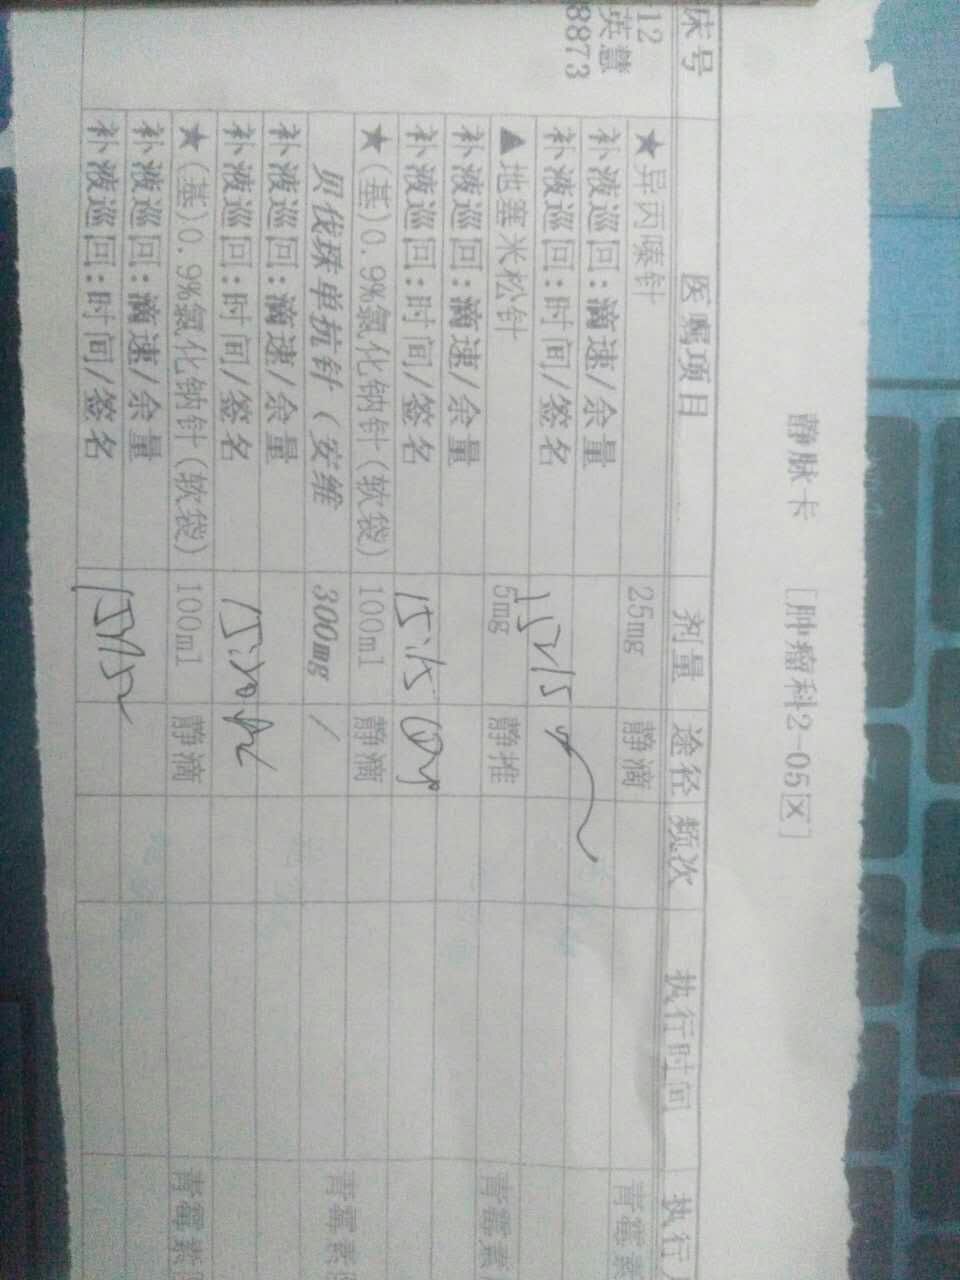 静脉卡 [肿瘤科2-05区]
床号 医嘱项目 剂量 途径 频次 执行时间 执行
12 ★异丙嗪针 25mg 静滴 青霉素
英慧 补液巡回:滴速/余量
8873 补液巡回:时间/签名
▲地塞米松针 5mg 静推 青霉素
补液巡回:滴速/余量
补液巡回:时间/签名 15:15
★(基)0.9%氯化钠针(软袋) 100ml 静滴
贝伐珠单抗针(安维 300mg / 青霉素
补液巡回:滴速/余量
补液巡回:时间/签名
★(基)0.9%氯化钠针(软袋) 100ml 静滴 青霉素
补液巡回:滴速/余量
补液巡回:时间/签名